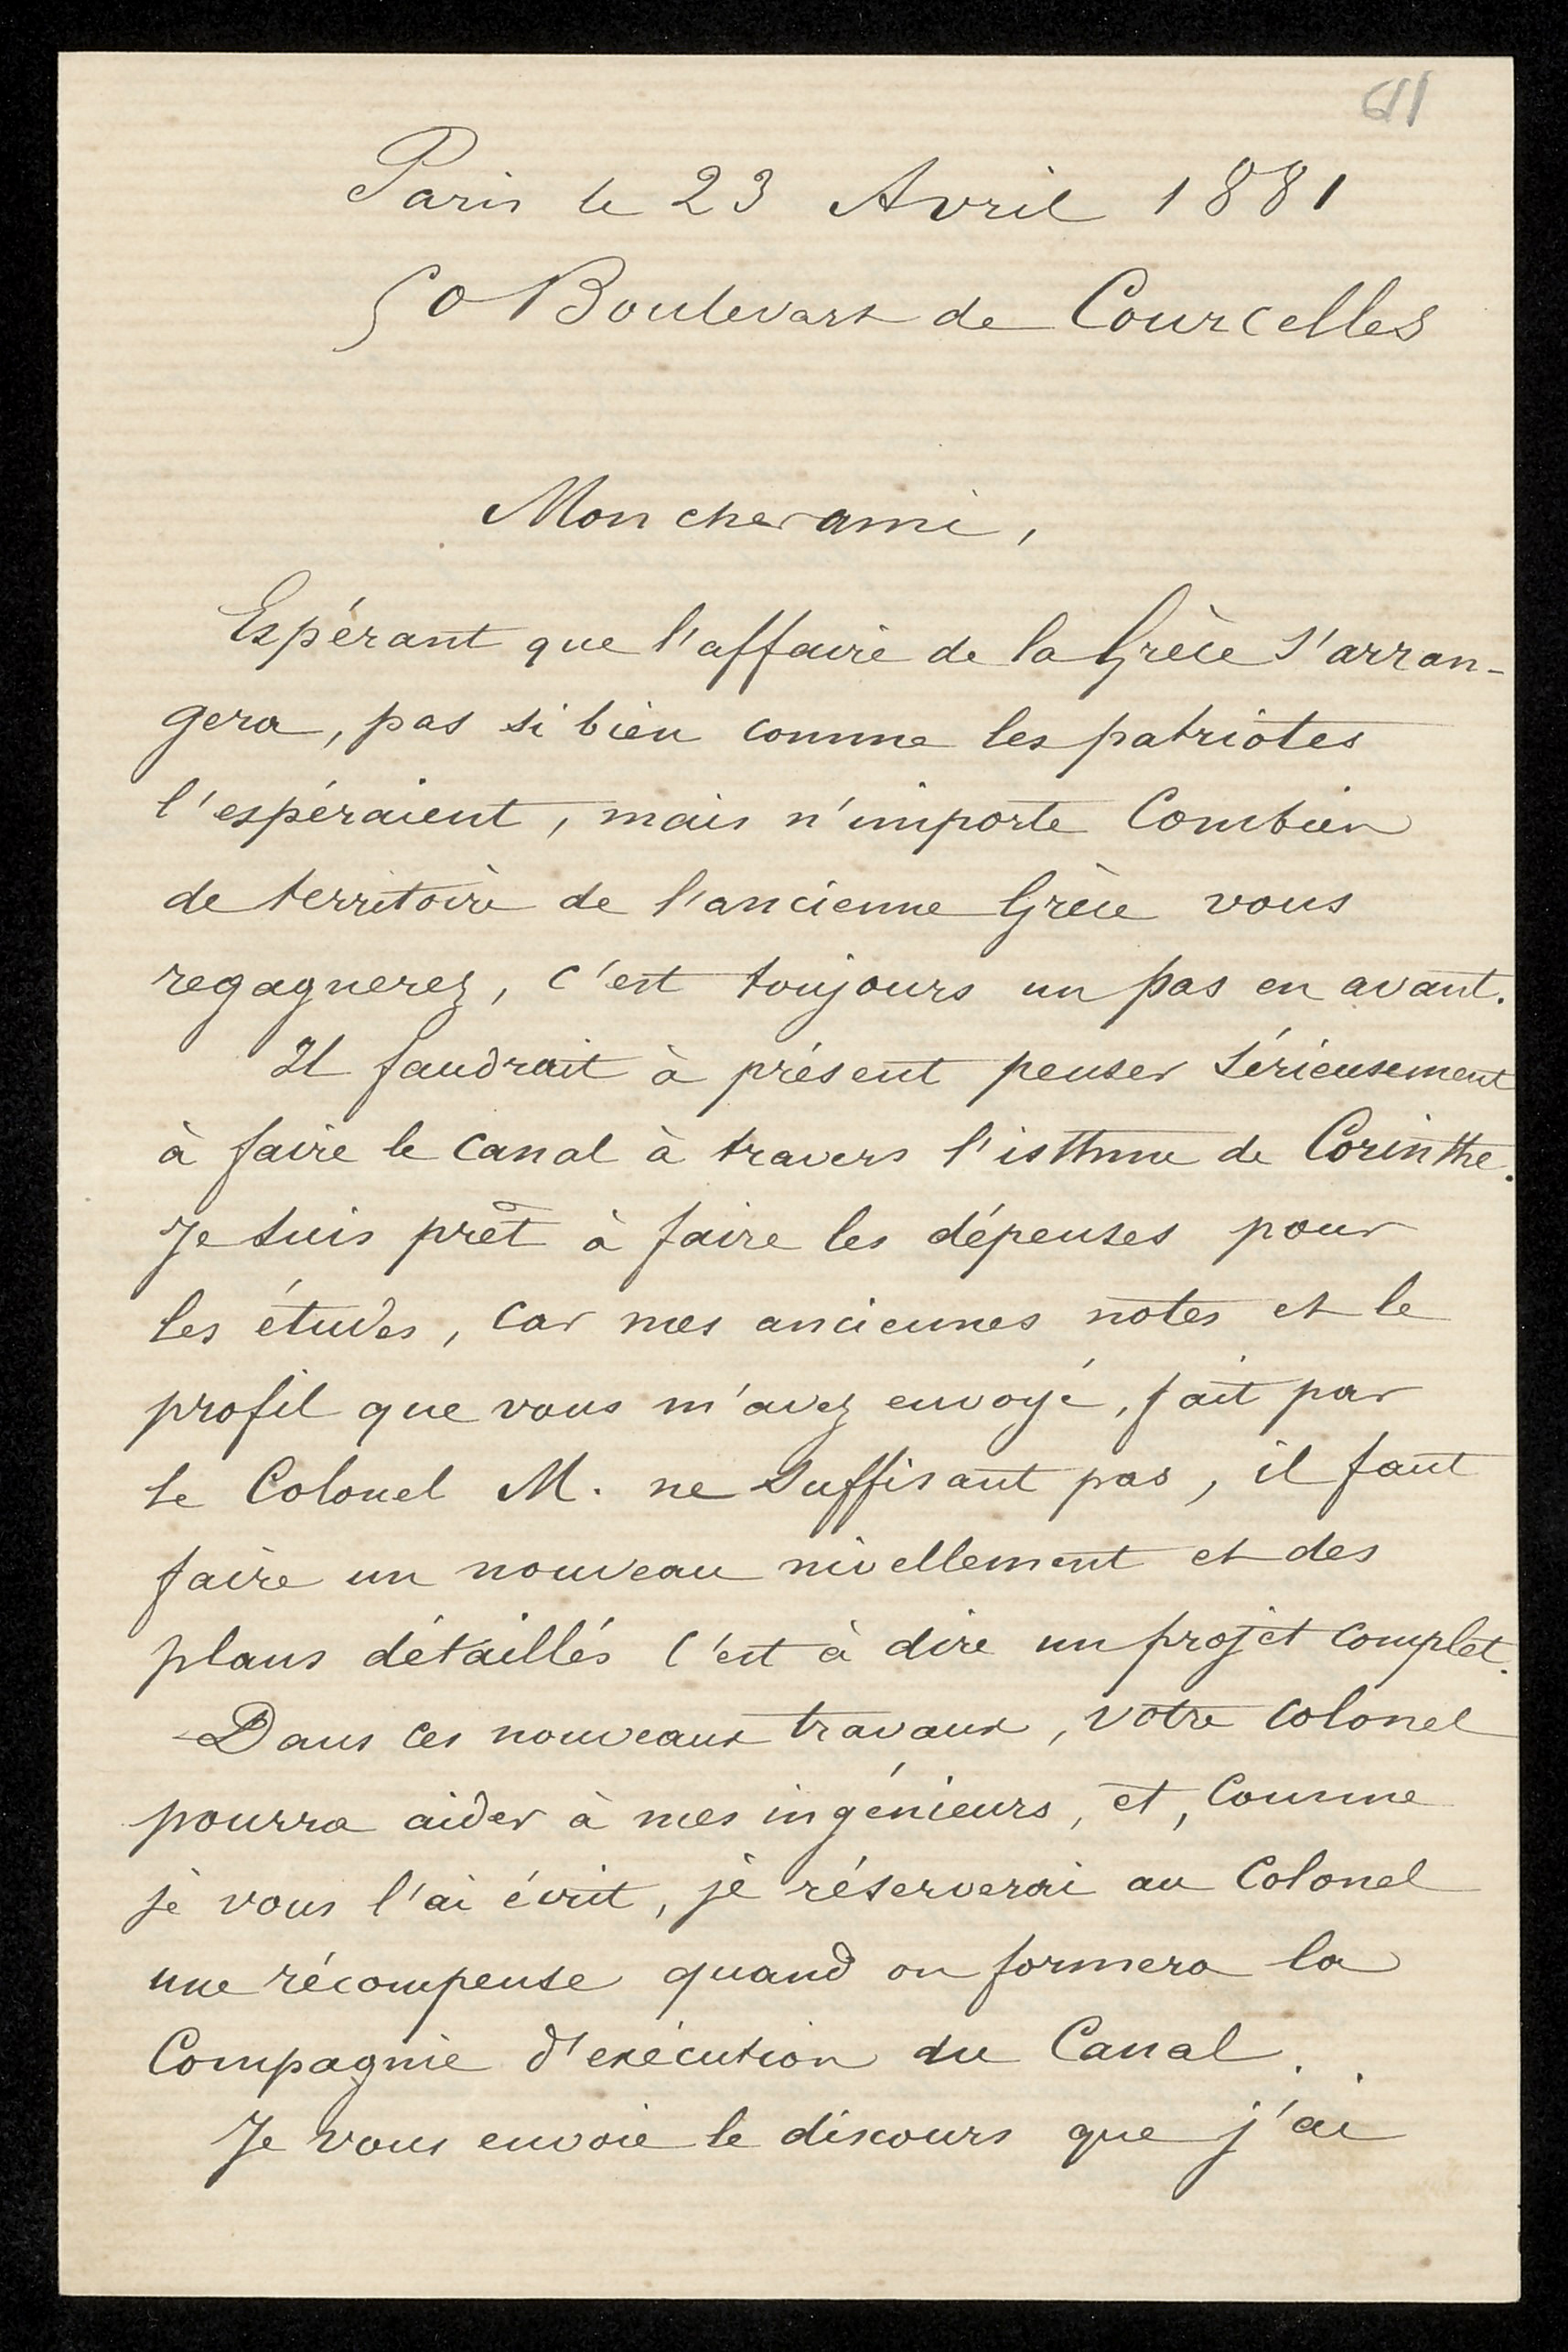 611
Paris le 23 Avril 1881
50 Boulevart de Courcelles
Mon cher ami,
Espérant que l'affaire de la Grèce s'arran-
gera, pas si bien comme les patriotes
l'espéraient, mais n'importe Combien
de territoire de l'ancienne Grèce vous
regagnerez, c'est toujours un pas en avant.
Il faudrait à présent penser sérieusement
à faire le canal à travers l'isthme de Corinthe.
Je suis prêt à faire les dépenses pour
les études, car mes anciennes notes et le
profil que vous m'avez envoyé, fait par
le Colonel M. ne suffisant pas, il faut
faire un nouveau nivellement et des
plans détaillés c'est à dire un projet complet.
Dans ces nouveaux travaux, votre colonel
pourra aider à mes ingénieurs, et, comme
je vous l'ai écrit, je réserverai au Colonel
une récompense quand on formera la
Compagnie d'exécution du Canal.
Je vous envoie le discours que j'ai